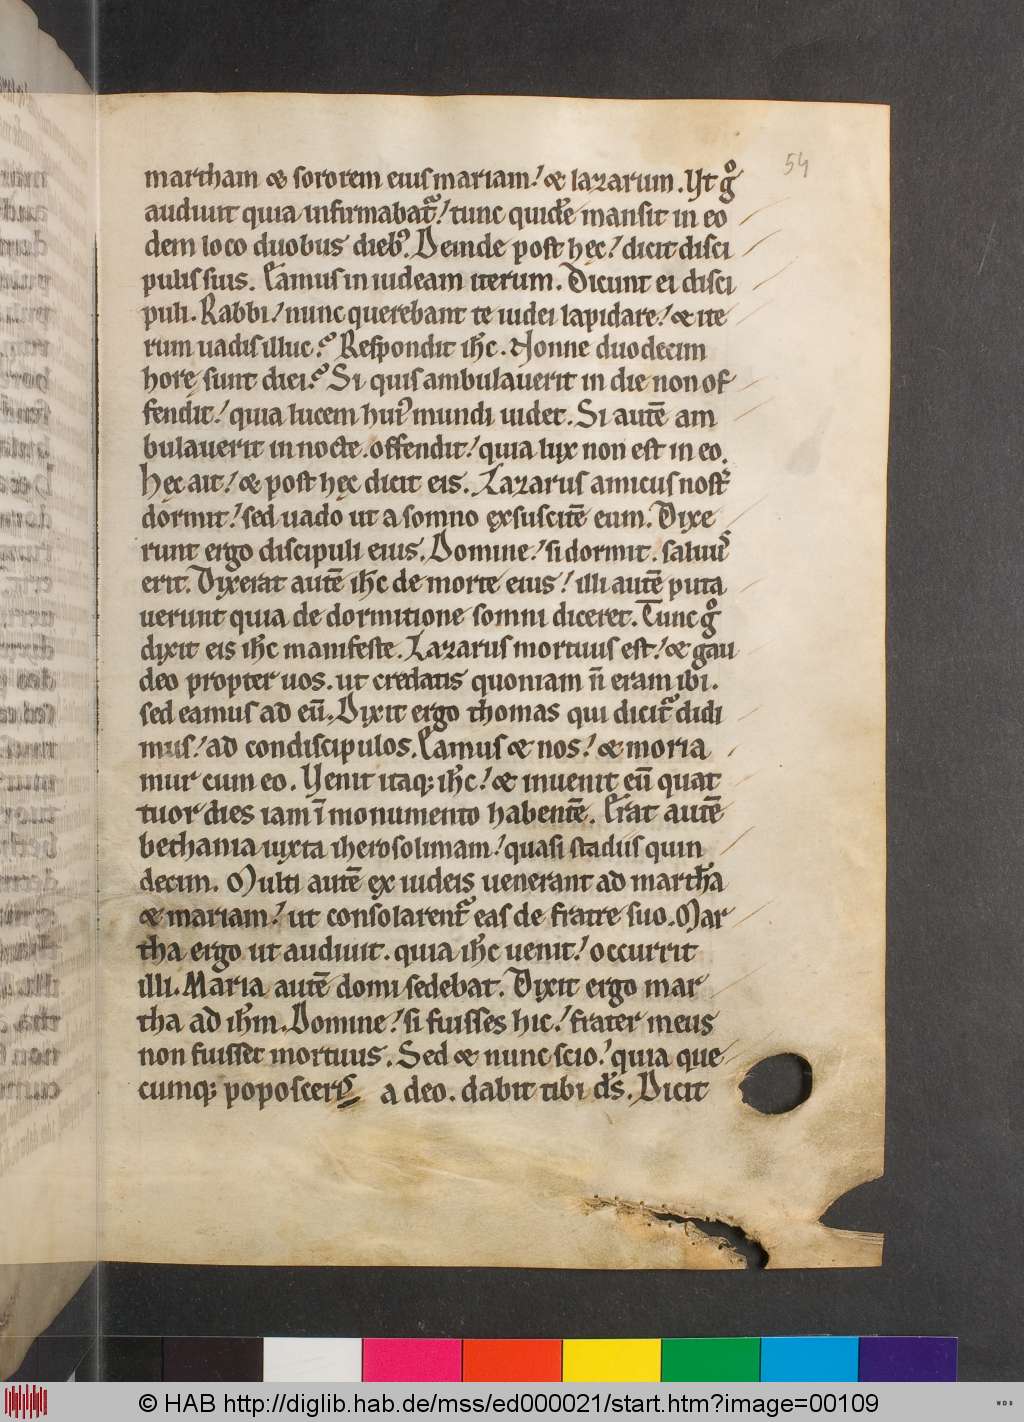 54
martham & sororem eius mariam! & lazarum. Vt gͦ
audiuit quia infirmabat᷑! tunc quidē mansit in eo
dem loco duobus dieb᷒. Deinde post hęc! dicit disci
pulis suis. Eamus in iudeam iterum. Dicunt ei disci
puli. Rabbi! nunc querebant te iudei lapidare! & ite
rum uadis illuc? Respondit ih̄c. Nonne duodecim
horę sunt diei? Si quis ambulauerit in die non of
fendit! quia lucem hui᷒ mundi uidet. Si autē am
bulauerit in nocte. offendit! quia lux non est in eo.
Hęc ait! & post hęc dicit eis. Lazarus amicus nost᷑
dormit! sed uado ut a somno exsuscitē eum. Dixe
runt ergo discipuli eius. Domine! si dormit. saluu᷒
erit. Dixerat autē ih̄c de morte eius! illi autē puta
uerunt quia de dormitione somni diceret. Tunc gͦ
dixit eis ih̄c manifeste. Lazarus mortuus est! & gau
deo propter uos. ut credatis quoniam n̄ eram ibi.
sed eamus ad eū. Dixit ergo thomas qui dicit᷑ didi
mus! ad condiscipulos. Eamus & nos! & moria
mur cum eo. Venit itaq; ih̄c! & inuenit eū quat
tuor dies iam ī monumento habentē. Erat autē
bethania iuxta iherosolimam! quasi stadiis quin
decim. Multi autē ex iudeis uenerant ad martha
& mariam! ut consolarent᷑ eas de fratre suo. Mar
tha ergo ut audiuit. quia ih̄c uenit! occurrit
illi. Maria autē domi sedebat. Dixit ergo mar
tha ad ih̄m. Domine! si fuisses hic! frater meus
non fuisset mortuus. Sed & nunc scio! quia que
cumq; poposceris a deo. dabit tibi d̄s. Dicit
© HAB http://diglib.hab.de/mss/ed000021/start.htm?image=00109